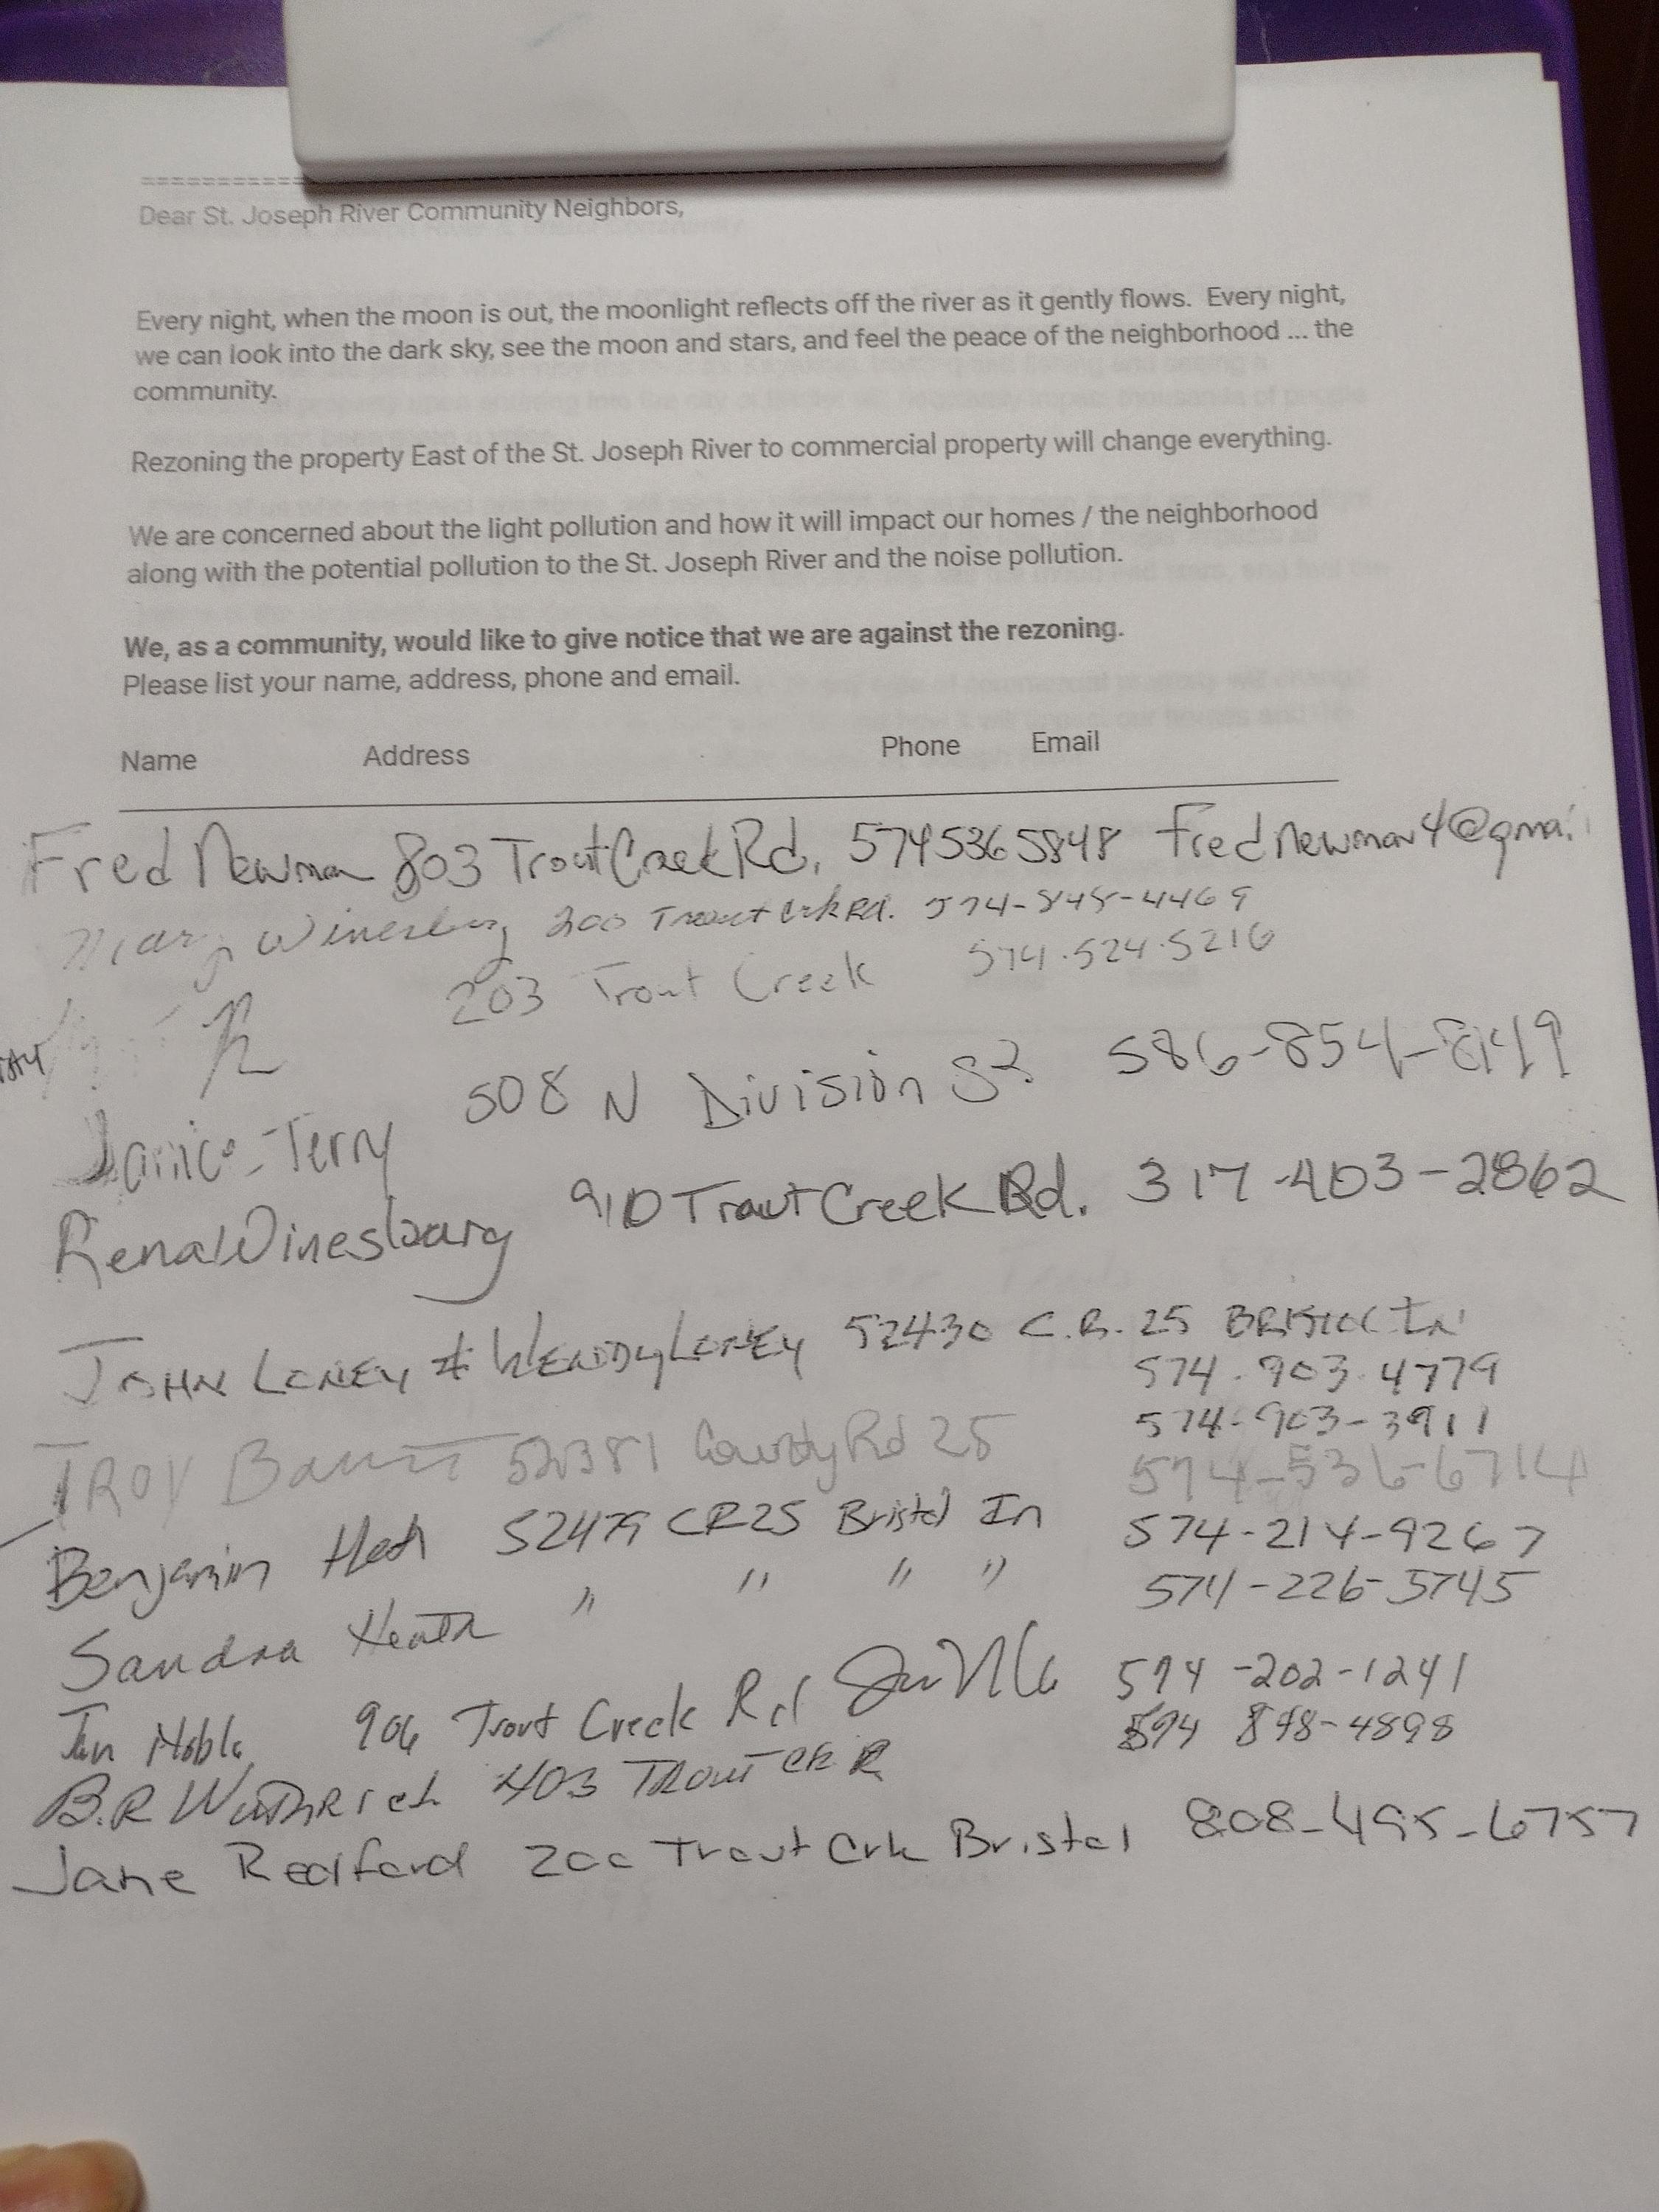 ===========
Dear St. Joseph River Community Neighbors,
Every night, when the moon is out, the moonlight reflects off the river as it gently flows. Every night,
we can look into the dark sky, see the moon and stars, and feel the peace of the neighborhood ... the
community.
Rezoning the property East of the St. Joseph River to commercial property will change everything.
We are concerned about the light pollution and how it will impact our homes / the neighborhood
along with the potential pollution to the St. Joseph River and the noise pollution.
We, as a community, would like to give notice that we are against the rezoning.
Please list your name, address, phone and email.
Name Address Phone Email
Fred Newman 803 Trout Creek Rd. 5745365848 frednewman4@gmai
Winesburg 200 Trout Crk Rd. 574-848-4469
203 Trout Creek 574.524.5216
Janice Terry 508 N Division St 586-854-8149
Rena Winesburg 910 Trout Creek Rd. 317-403-2862
JOHN LONEY & WENDY LONEY 52430 C.R. 25 BRISTOL IN
574.903.4779
574-903-3911
TROY 52381 County Rd 25 574-536-6714
Benjamin Heath 52479 CR25 Bristol In 574-214-9267
Sandra Heath " " " " 574-226-5745
Noble 906 Trout Creek Rd 574-202-1241
B.R WUTHRICH 403 TROUT CR R 574 848-4898
Jane Redford 200 Trout Crk Bristol 808-495-6757